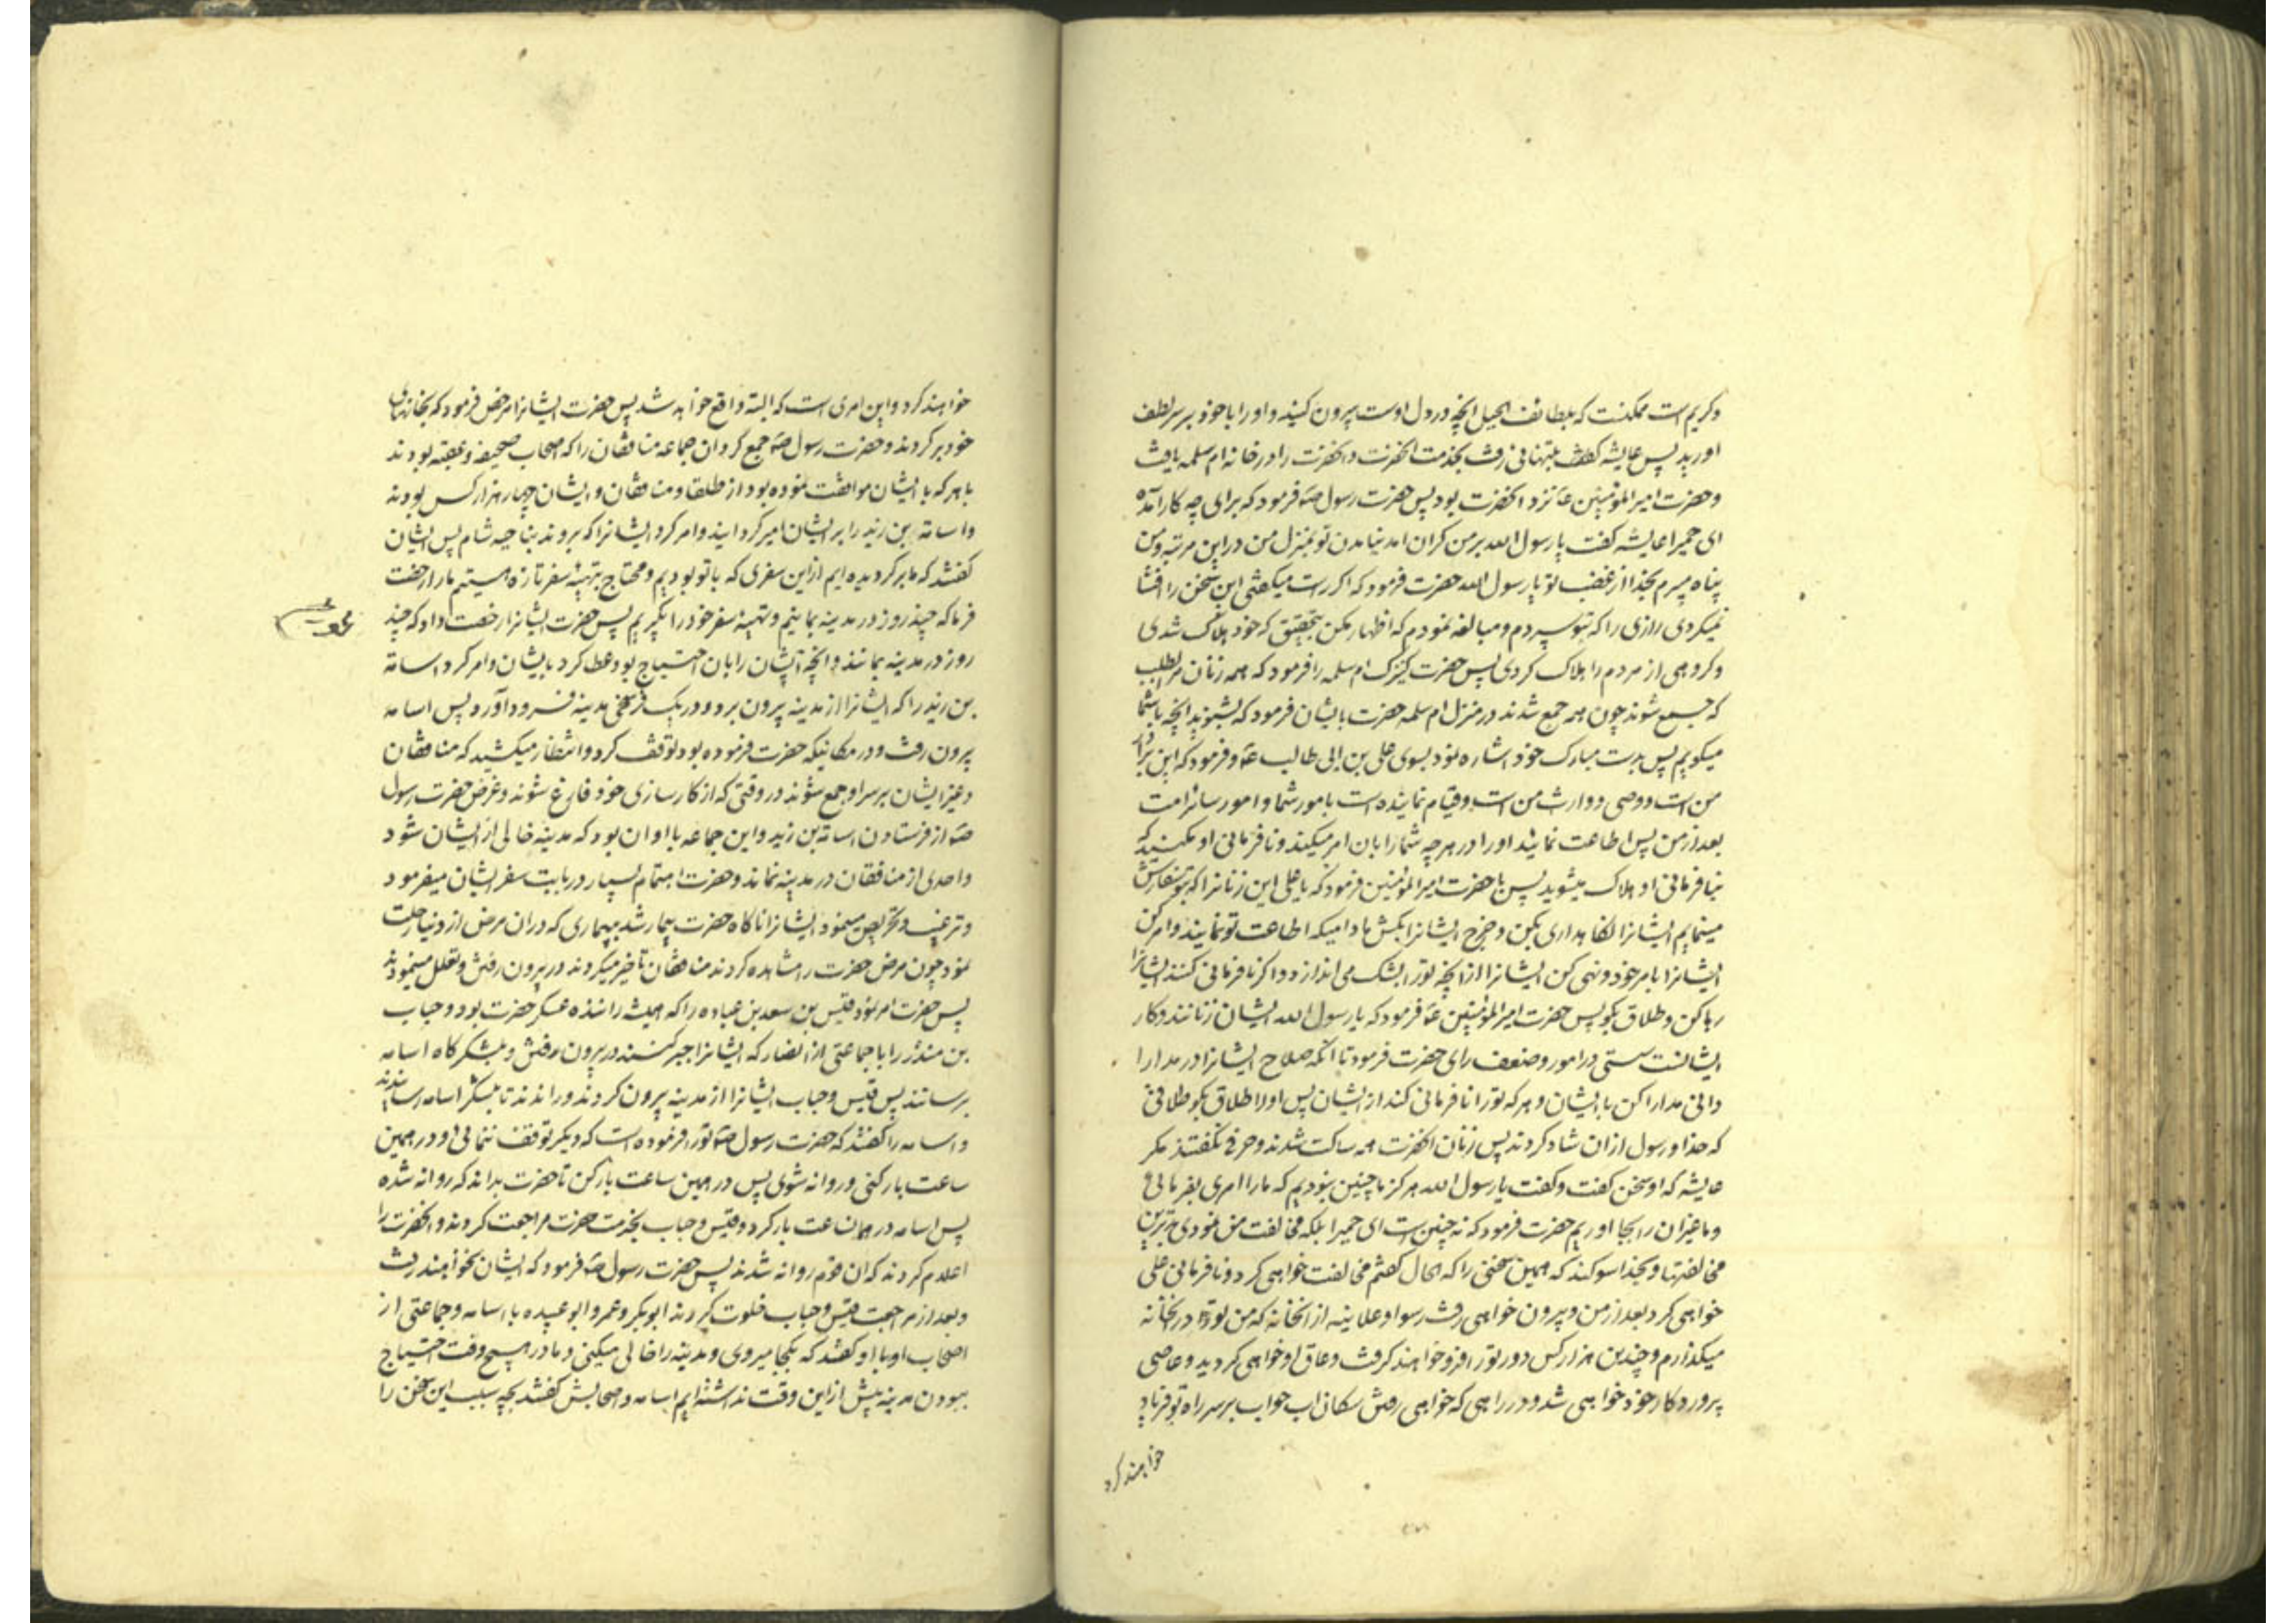 وکریم است ممکنست که بلطائف الحیل انچه در دل اوست بیرون کنید و او را با خود بر سر لطف
اورید پس عایشه کفت بتنهائی رفت بخدمت انحضرت و انحضرت را در خانه ام سلمه یافت
و حضرت امیر المؤمنین ع نزد انحضرت بود پس حضرت رسول ص فرمود که برای چه کار آمده
ای حمیرا عایشه کفت یا رسول الله بر من کران امد نیامدن تو بمنزل من در این مرتبه و من
پناه میبرم بخدا از غضب تو یا رسول الله حضرت فرمود که اکر راست میکفتی این سخن را افشا
نمیکردی رازی را که بتو سپردم و مبالغه نمودم که اظهار مکن بتحقیق که خود هلاک شدی
و کروهی از مردم را هلاک کردی پس حضرت کنیزک ام سلمه را فرمود که همه زنان مرا بطلب
که جمع شوند چون همه جمع شدند در منزل ام سلمه حضرت بایشان فرمود که بشنوید انچه باشما
میکویم پس بدست مبارک خود اشاره نمود بسوی علی بن ابی طالب ع و فرمود که این برادر
من است و وصی و وارث من است و قیام نماینده است بامور شما و امور سائر امت
بعد از من پس اطاعت نمائید او را در هر چه شما را بان امر میکند و نافرمانی او مکنید که
بنافرمانی او هلاک میشوید پس با حضرت امیر المؤمنین فرمود که یا علی این زنانرا که بتو سفارش
مینمایم ایشانرا نکاهداری بکن و خرج ایشانرا بکش مادامیکه اطاعت تو نمایند و امر کن
ایشانرا بامر خود و نهی کن ایشانرا از انچه تو را بشک می اندازد و اکر نافرمانی کنند ایشانرا
رها کن و طلاق بکو پس حضرت امیر المؤمنین ع فرمود که یا رسول الله ایشان زنانند و کار
ایشانست سستی در امور و ضعف رای حضرت فرمود تا انکه صلاح ایشانرا در مدارا
دانی مدارا کن با ایشان و هر که تو را نافرمانی کند از ایشان پس او را طلاق بکو طلاقی
که خدا و رسول از ان شاد کردند پس زنان انحضرت همه ساکت شدند و حرفی نکفتند مکر
عایشه که او سخن کفت و کفت یا رسول الله هرکز ما چنین نبودیم که ما را امری بفرمائی و
و ما غیر ان را بجا اوریم حضرت فرمود که نه چنین است ای حمیرا بلکه مخالفت من نمودی بدترین
مخالفتها و بخدا سوکند که همین سخنی را که الحال کفتم مخالفت خواهی کرد و نافرمانی علی
خواهی کرد بعد از من و بیرون خواهی رفت رسوا و علانیه از انخانه که من تو را در انخانه
میکذارم و چندین هزار کس دور تو را فرو خواهند کرفت و عاق او خواهی کردید و عاصی
پروردکار خود خواهی شد و در راهی که خواهی رفتن سکان اب حواب بر سر راه تو فریاد
خواهند کرد
خواهند کرد و این امری است که البته واقع خواهد شد پس حضرت ایشانرا مرخص فرمود که بخانهای
خود برکردند و حضرت رسول ص جمع کرد ان جماعه منافقان را که اصحاب صحیفه و عقبه بودند
با هر که با ایشان موافقت نموده بود از طلقا و منافقان و ایشان چهار هزار کس بودند
و اسامه بن زید را بر ایشان امیر کردانید و امر کرد ایشانرا که بروند بناحیه شام پس ایشان
کفتند که ما برکردیده ایم از این سفری که با تو بودیم و محتاج بتهیهٔ سفر تازه هستیم ما را رخصت
فرما که چند روز در مدینه بمانیم و تهیهٔ سفر خود را بکیریم پس حضرت ایشانرا رخصت داد که چند
روز در مدینه بمانند و انچه ایشان را بان احتیاج بود عطا کرد بایشان و امر کرد اسامة
بن زید را که ایشانرا از مدینه بیرون برد و در یک فرسخی مدینه فرود آورد پس اسامه
بیرون رفت و در مکانیکه حضرت فرموده بود توقف کرد و انتظار میکشید که منافقان
و غیر ایشان بر سر او جمع شوند در وقتی که از کارسازی خود فارغ شوند و غرض حضرت رسول
ص از فرستادن اسامه بن زید و این جماعه با او ان بود که مدینه خالی از ایشان شود
و احدی از منافقان در مدینه نماند و حضرت اهتمام بسیار در بابت سفر ایشان میفرمود
و ترغیب و تحریص مینمود ایشانرا ناکاه حضرت بیمار شد بیماری که در ان مرض از دنیا رحلت
نمود چون مرض حضرت را مشاهده کردند منافقان تاخیر میکردند در بیرون رفتن و تعلل مینمودند
پس حضرت امر نمود قیس بن سعد بن عباده را که همیشه راننده عسکر حضرت بود و حباب
بن منذر را با جماعتی از انصار که ایشانرا جبر کنند در بیرون رفتن و بلشکرکاه اسامه
برسانند پس قیس و حباب ایشانرا از مدینه بیرون کردند و راندند تا بلشکر اسامه رسانیدند
و اسامه را کفتند که حضرت رسول ص تو را فرموده است که دیکر توقف ننمائی و در همین
ساعت بار کنی و روانه شوی پس در همین ساعت بار کن تا حضرت بداند که روانه شده
پس اسامه در همان ساعت بار کرد و قیس و حباب بخدمت حضرت مراجعت کردند و انحضرت را
اعلام کردند که ان قوم روانه شدند پس حضرت رسول ص فرمود که ایشان نخواهند رفت
و بعد از مراجعت قیس و حباب خلوت کردند ابوبکر و عمر و ابو عبیده با اسامه و جماعتی از
اصحاب او با او کفتند که بکجا میروی و مدینه را خالی میکنی و ما در هیچ وقت احتیاج
ببودن مدینه بیش از این وقت نداشته ایم اسامه و اصحابش کفتند بچه سبب این سخن را